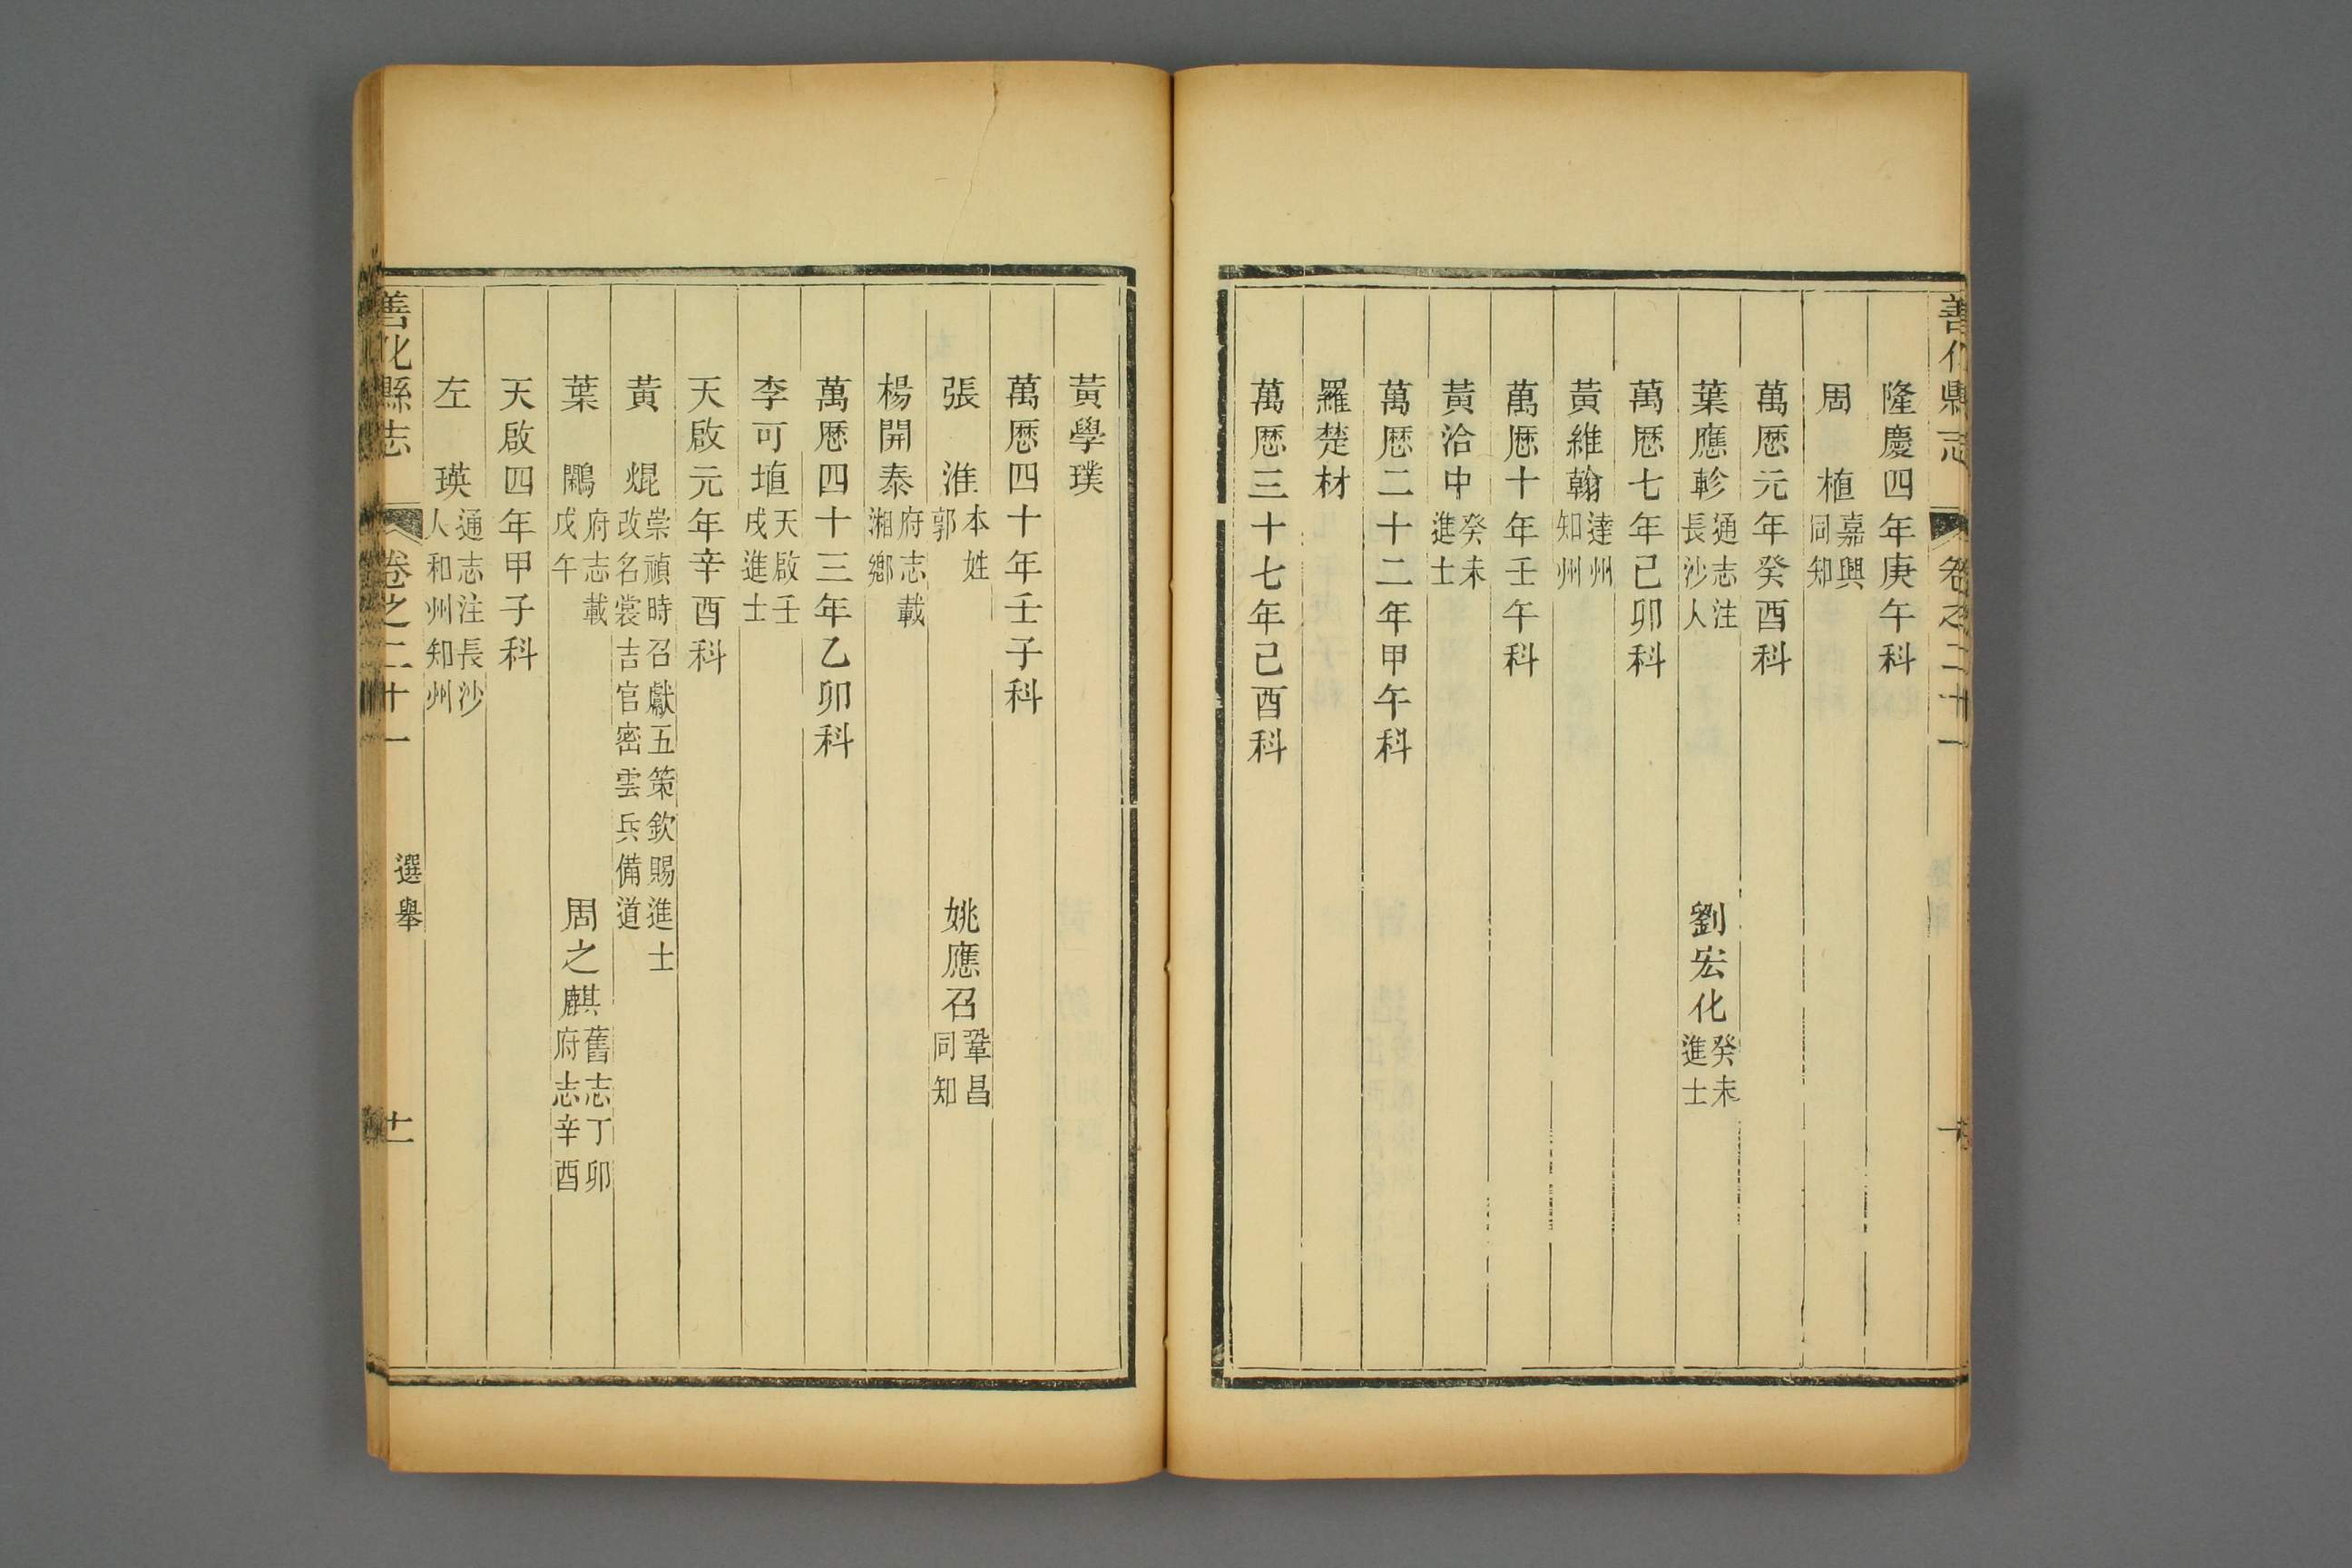 善化縣志 卷之二十一 十
隆慶四年庚午科
周 植 嘉興同知
萬厯元年癸酉科
葉應軫 通志注長沙人 劉宏化 癸未進士
萬厯七年己卯科
黃維翰 達州知州
萬厯十年壬午科
黃洽中 癸未進士
萬厯二十二年甲午科
羅楚材
萬厯三十七年己酉科
黃學璞
萬厯四十年壬子科
張 淮 本姓郭 姚應召 鞏昌同知
楊開泰 府志載湘鄉
萬厯四十三年乙卯科
李可埴 天啟壬戌進士
天啟元年辛酉科
黃 焜 崇禎時召獻五策欽賜進士改名裳吉官密雲兵備道
葉 鷳 府志載戊午 周之麒 舊志丁卯府志辛酉
天啟四年甲子科
左 瑛 通志注長沙人和州知州
善化縣志 卷之二十一 選舉 十一